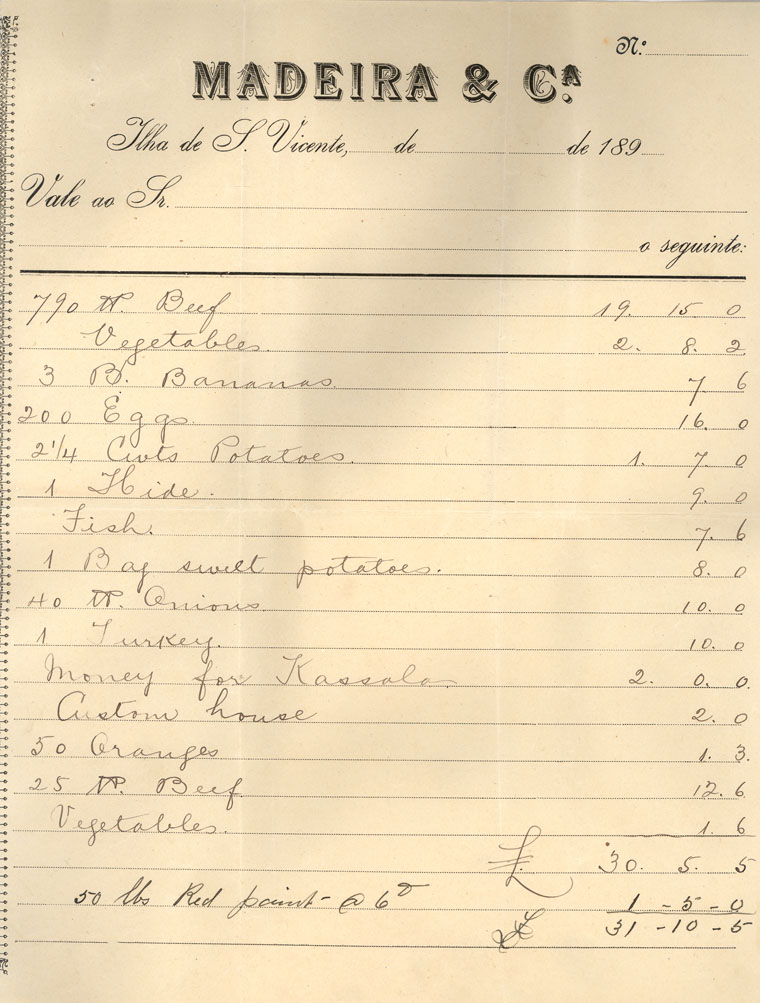 Nº
MADEIRA & Cª
Ilha de S. Vicente, de de 189
Vale ao Sr.
o seguinte:
790 ℔. Beef 19. 15 0
Vegetables. 2. 8. 2
3 B. Bananas. 7 6
200 Eggs. 16. 0
2 1/4 Cwts Potatoes. 1. 7. 0
1 Hide. 9. 0
Fish. 7. 6
1 Bag sweet potatoes. 8. 0
40 ℔. Onions. 10. 0
1 Turkey. 10. 0
Money for Kassala 2. 0. 0.
Custom house 2. 0
50 Oranges 1. 3.
25 ℔. Beef. 12. 6
Vegetables. 1. 6
£. 30. 5. 5
50 lbs Red paint - @ 6ᴰ 1 - 5 - 0
£ 31 - 10 - 5